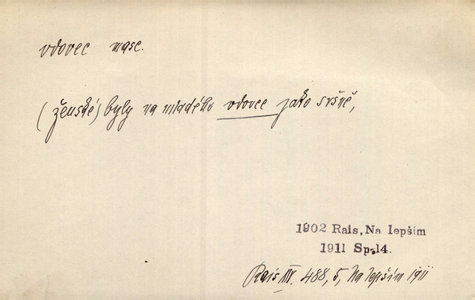 vdovec masc.
(ženské) byly na mladého vdovce jako sršně,
1902 Rais, Na lepším
1911 Sp.14.
Rais III. 488, 5, Na lepším 1911